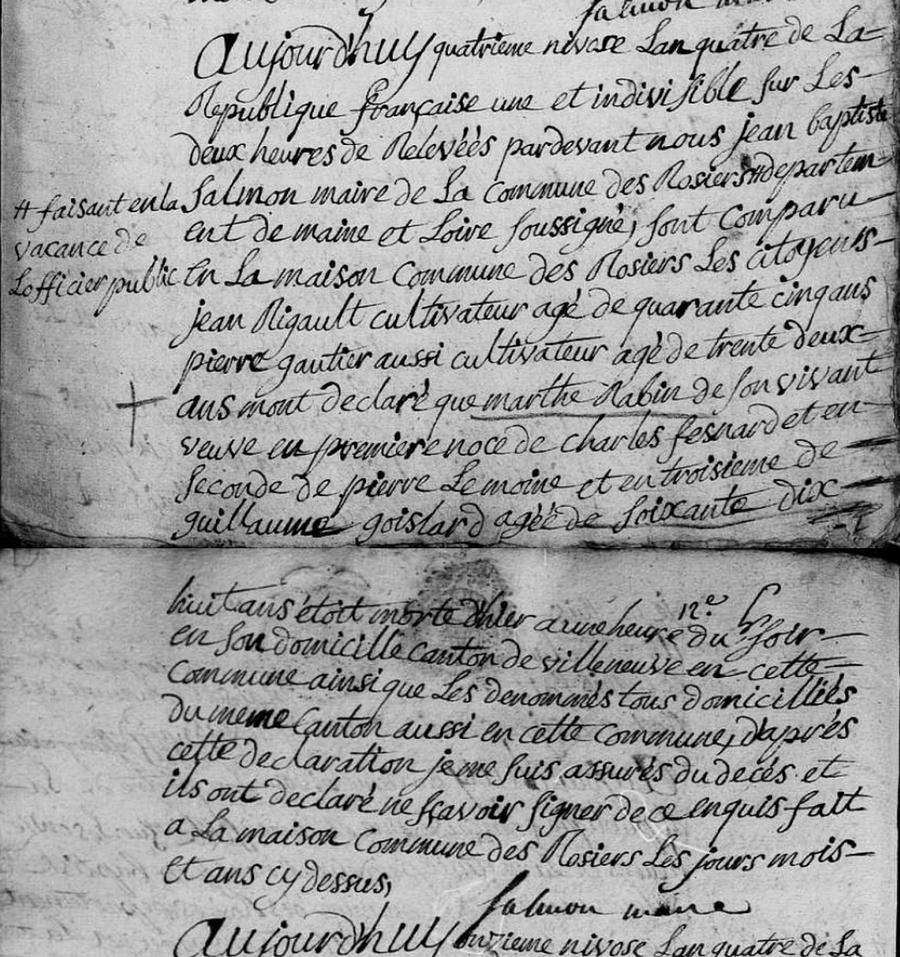 Salmon
Aujourdhuy quatrieme nivose Lan quatre de La
Republique française une et indivisible sur Les
deux heures de Relevéés pardevant nous jean baptiste
Salmon maire de La Commune des Rosiers # departem-
ent de maine et Loire soussigné, sont Comparu
En La maison Commune des Rosiers Les citoyens
jean Rigault cultivateur agé de quarante cinq ans
pierre gautier aussi cultivateur agé de trente deux
ans mont declaré que marthe Rabin de son vivant
veuve en premiere noce de charles fesnard et en
seconde de pierre Lemoine et en troisieme de
guillaume goislard agéé de soixante dix
# faisant en la
vacance de
Lofficier public
huit ans étoit morte d'hier a une heure du soir
12.e
en son domicille Canton de villeneuve en cette
Commune ainsi que Les denommés tous domicilliés
du meme Canton aussi en cette Commune, d'aprés
cette declaration je me suis assurés du decés et
ils ont declaré ne sçavoir signer de ce enquis fait
a La maison Commune des Rosiers Les jours mois
Et ans cy dessus,
Salmon maire
Aujourdhuy onzieme nivose Lan quatre de La